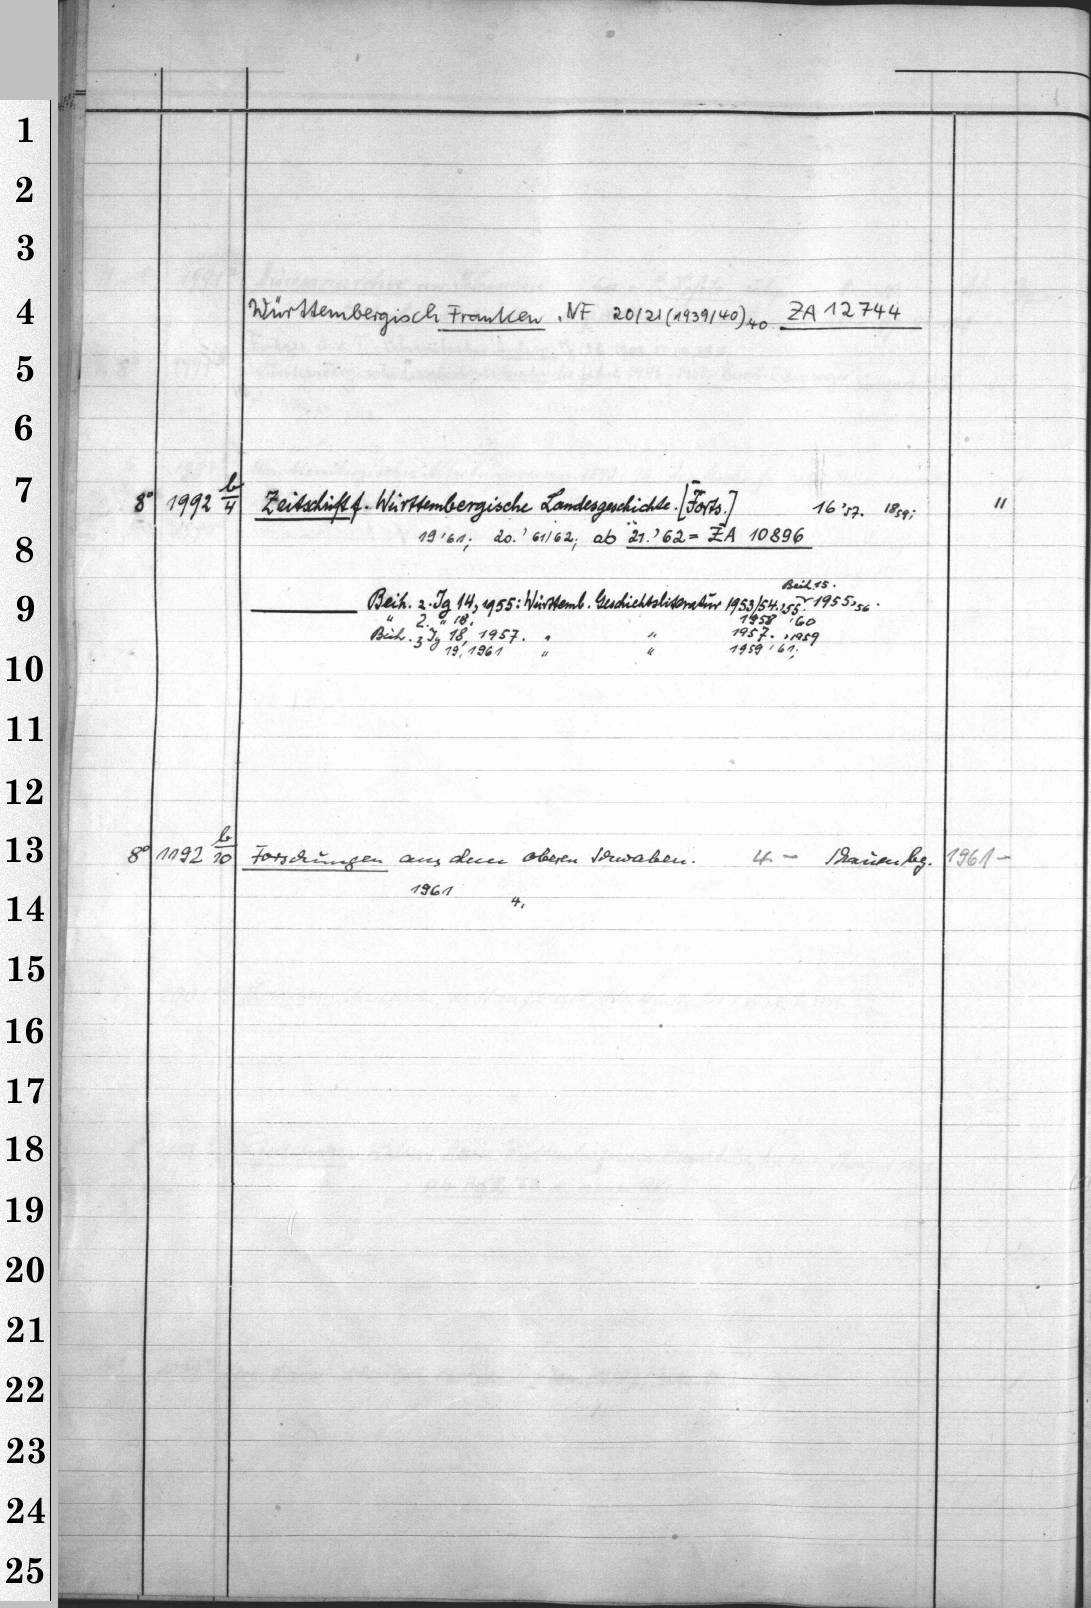 1
2
3
4 Württembergisch Franken. NF 20/21 (1939/40) 40 ZA 12744
5
6
7 8° 1992 b/4 Zeitschrift f. Württembergische Landesgeschichte. [Forts.] 16 '57. 18 59; "
8 19 '61; 20.' 61/62; ab 21.' 62 = ZA 10896
Beih 15.
9 Beih. z. Jg 14, 1955: Württemb. Geschichtsliteratur 1953/54. '55. 1955, 56.
" z. " 18, 1958 '60
Beih. z Jg 18, 1957. " " 1957. , 1959
19, 1961 " " 1959 '61;
10
11
12
13 8° 1192 b/10 Forschungen aus dem oberen Schwaben. 4 – 1961 –
1961 4,
14
15
16
17
18
19
20
21
22
23
24
25